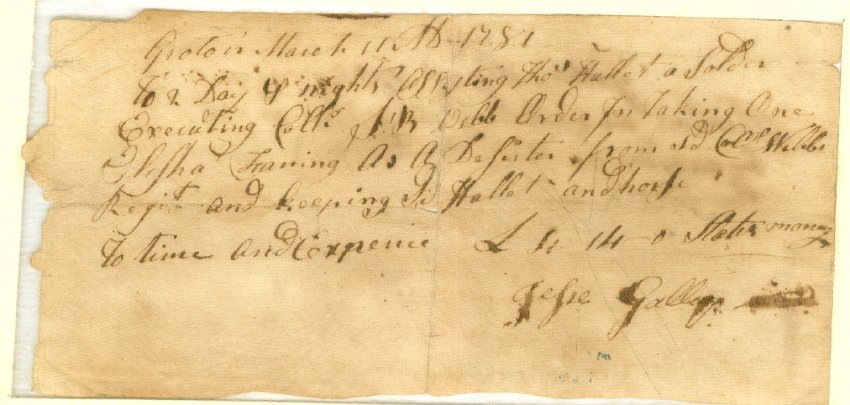 Groton March 11 AD 1781
To 2 Day & nights Assisting Thos Hallet a Solder
Executing Collo Webb Order In taking One
Elisha Faning As A Desister from sd Colne Webbs
Regit and keeping sd Hallet and horse
To time and Expence L 4 - 14 - 0 States money
Jesse Gallup